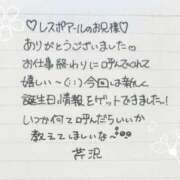 ♡レスポアールのお兄様♡
ありがとうございました♡
お仕事終わりに呼んでくれて
嬉しい〜(;;)今回は新しく
誕生日情報をゲットできました!
いつか何て呼んだらいいか
教えてほしいな〜
芹沢